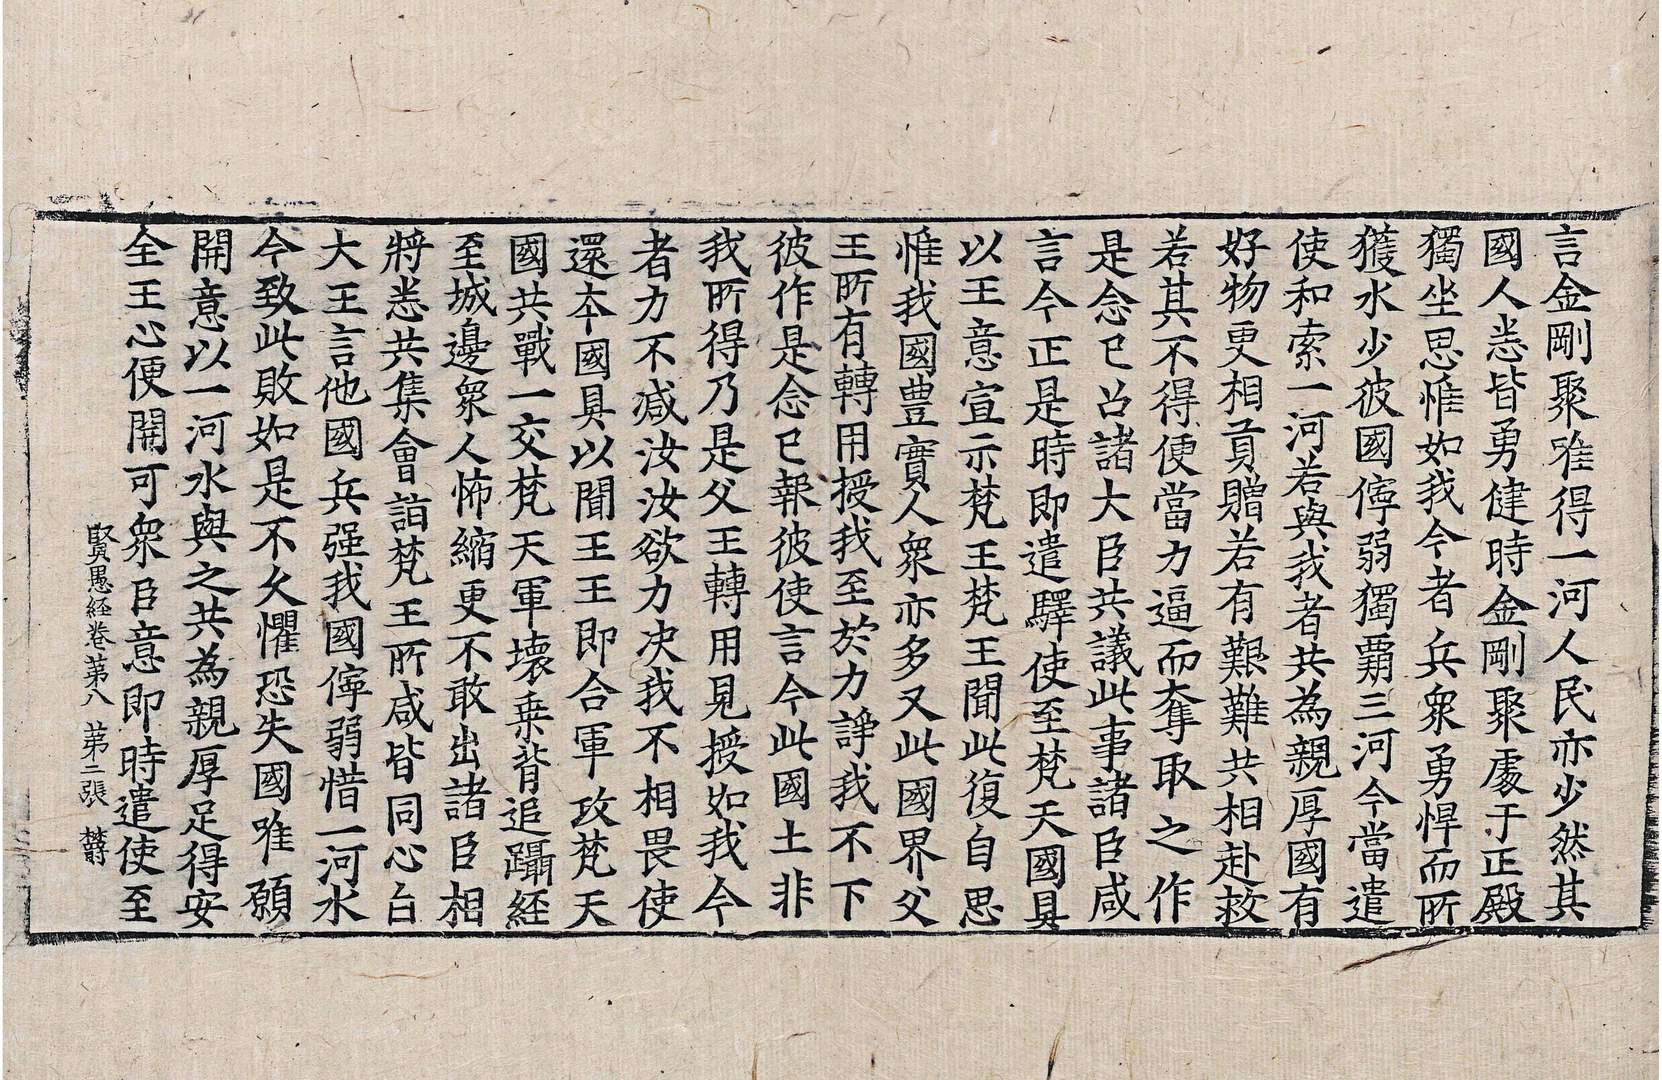 言金剛聚唯得一河人民亦少然其
國人悉皆勇健時金剛聚處于正殿
獨坐思惟如我今者兵衆勇悍而所
獲水少彼國儜弱獨霸三河今當遣
使和索一河若與我者共為親厚國有
好物更相貢贈若有艱難共相赴救
若其不得便當力逼而奪取之作
是念已召諸大臣共議此事諸臣咸
言今正是時即遣驛使至梵天國具
以王意宣示梵王梵王聞此復自思
惟我國豊實人衆亦多又此國界父
王所有轉用授我至於力諍我不下
彼作是念已報彼使言今此國土非
我所得乃是父王轉用見授如我今
者力不減汝汝欲力决我不相畏使
還本國具以聞王王即合軍攻梵天
國共戰一交梵天軍壊乗背追躡經
至城邊衆人怖縮更不敢出諸臣相
將悉共集會詣梵王所咸皆同心白
大王言他國兵强我國儜弱惜一河水
今致此敗如是不久懼恐失國唯願
開意以一河水與之共為親厚足得安
全王心便開可衆臣意即時遣使至
賢愚經卷第八 第二張 欝